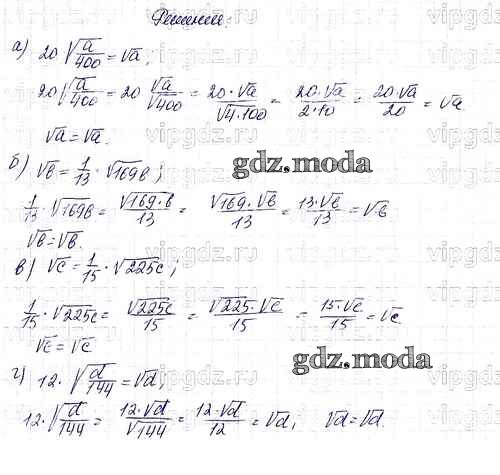 Решение:
а) 20 √(a/400) = √a;
20 √(a/400) = 20 √a/√400 = 20·√a/√(4·100) = 20·√a/(2·10) = 20·√a/20 = √a
√a = √a.
б) √b = 1/13 · √169b;
1/13 · √169b = √(169·b)/13 = √169·√b/13 = 13·√b/13 = √b
√b = √b.
в) √c = 1/15 · √225c;
1/15 · √225c = √225c/15 = √225·√c/15 = 15·√c/15 = √c
√c = √c
г) 12· √(d/144) = √d;
12· √(d/144) = 12·√d/√144 = 12·√d/12 = √d; √d = √d.
gdz.moda
gdz.moda
vipgdz.ru